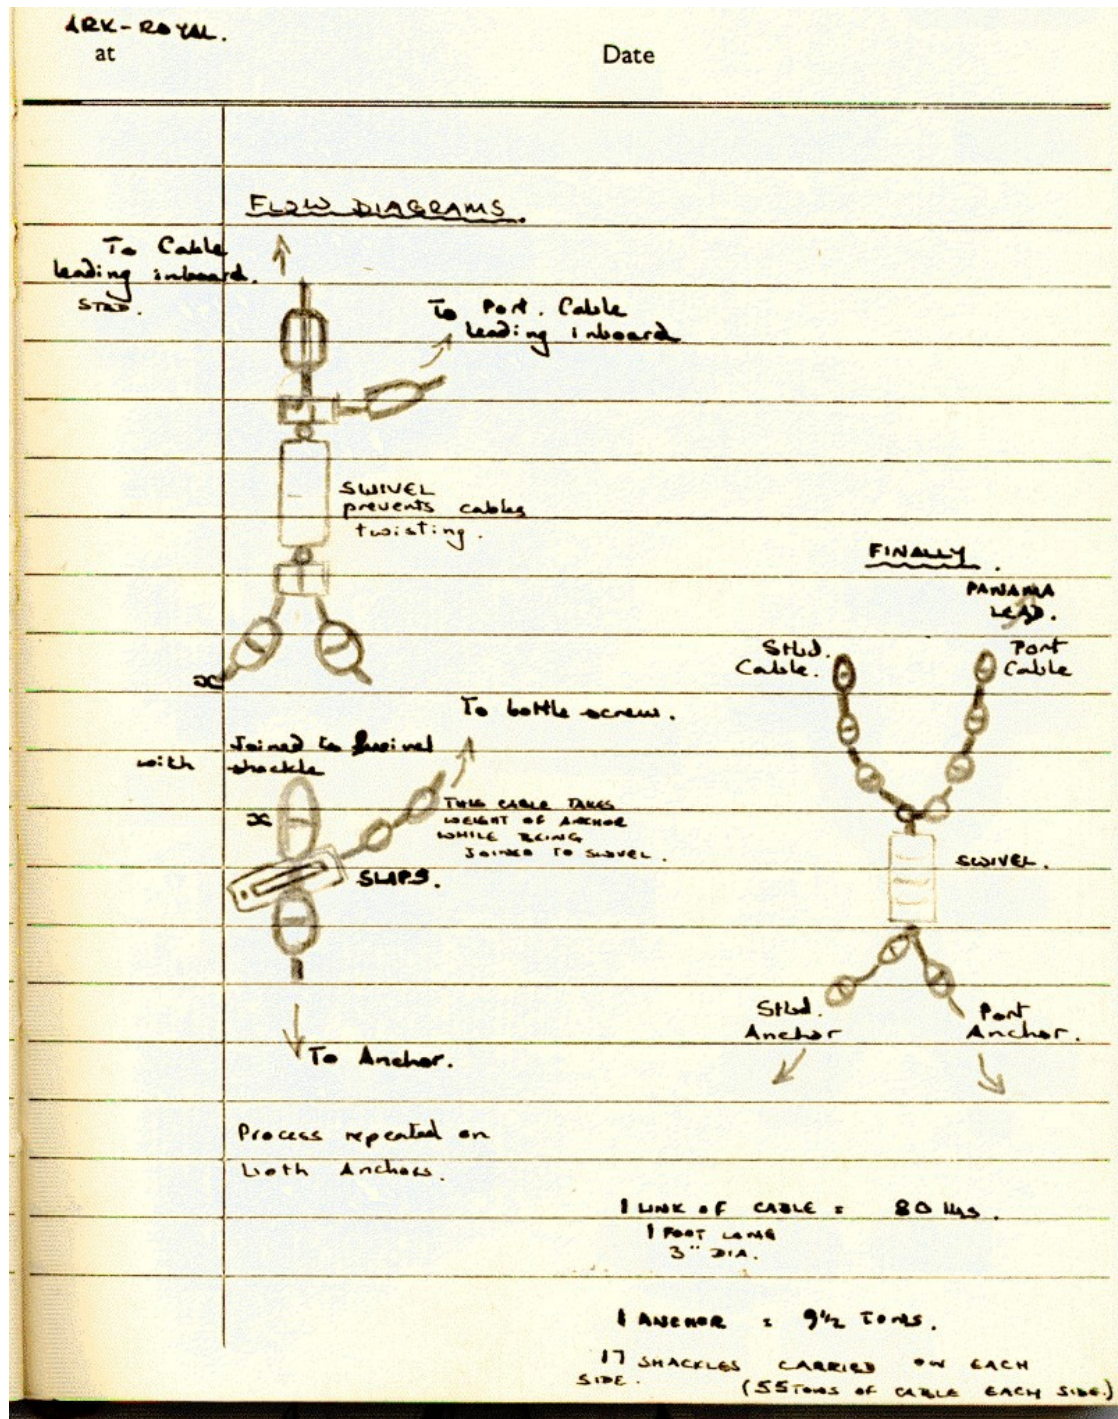 ARK-ROYAL.
at Date
FLOW DIAGRAMS.
To Cable
leading inboard.
STBD.
To Port. Cable
leading inboard
SWIVEL
prevents cables
twisting.
x
To bottle screw.
Joined to swivel
with shackle
x
THIS CABLE TAKES
WEIGHT OF ANCHOR
WHILE BEING
JOINED TO SWIVEL.
SLIPS.
To Anchor.
Process repeated on
both Anchors.
FINALLY.
PANAMA
LEAD.
Stbd.
Cable.
Port
Cable
SWIVEL.
Stbd.
Anchor
Port
Anchor.
1 LINK OF CABLE = 80 lbs.
1 FOOT LONG
3" DIA.
1 ANCHOR = 9½ TONS.
17 SHACKLES CARRIED ON EACH
SIDE. (55 TONS OF CABLE EACH SIDE.)